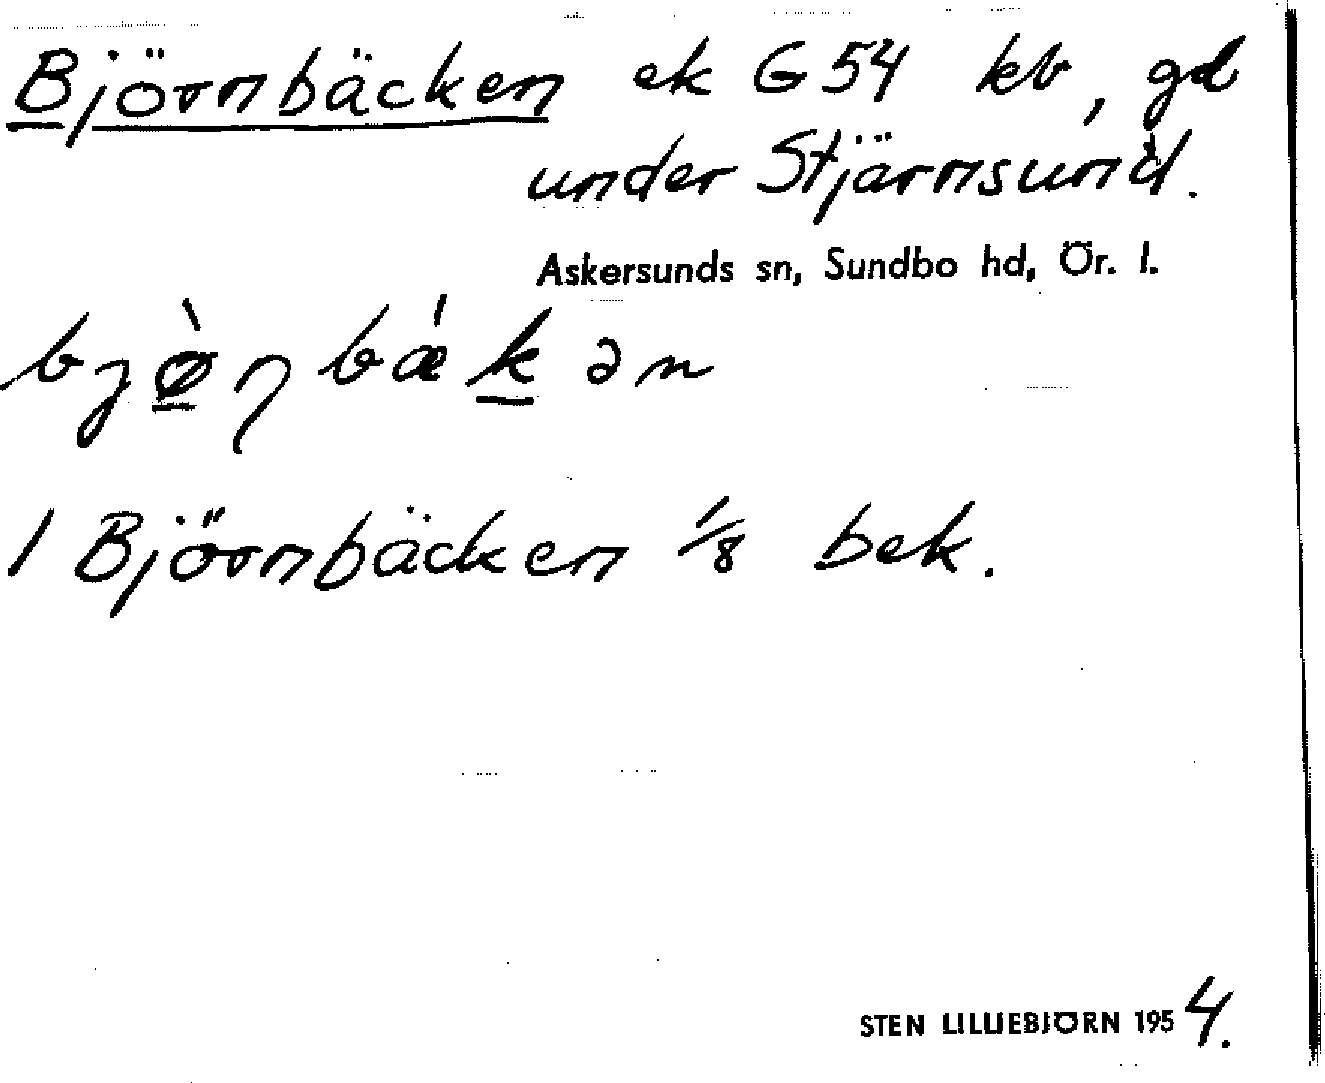 Björnbäcken ek G 54 kb, gd
under Stjärnsund.
Askersunds sn, Sundbo hd, Ör. l.
bjø̀ɳbǽkən
1 Björnbäcken 1/8 bek.
STEN LILLIEBJÖRN 1954.